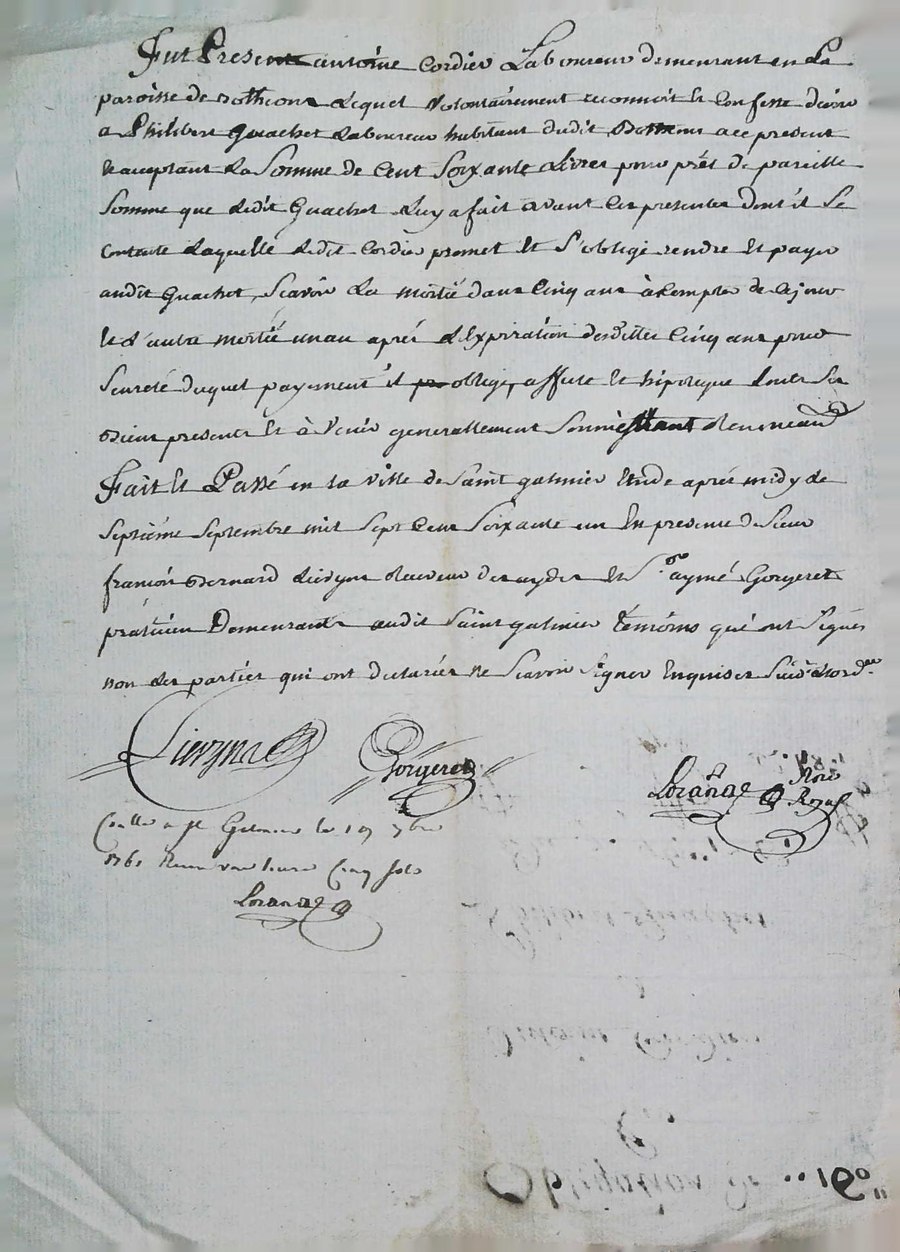 Fut Present antoine Cordier Laboureur demeurant en La
paroisse de Botheont Lequel volontairement reconnoit et Confesse devoir
a Philibert Guachet Laboureur habitant dudit Botheont a ce present
et acceptant La Somme de Cent Soixante Livres pour prêt de pareille
Somme que Ledit Guachet Luy a fait avant Ces presentes dont il Se
Contente Laquelle Ledit Cordier promet et S'oblige rendre et payer
audit Guachet, Scavoir La moitié dans Cinq ans à Compter de Ce jour
et L'autre moitié un an aprés L'Expiration desdittes Cinq ans pour
Seureté duquel payement il oblige, affecte et hipoteque touts Ses
Biens presents et à Venir generallement Soumettant Renoncant
Fait et Passé en La Ville de Saint galmier Etude aprés midy Le
Septième Septembre mil Sept Cent Soixante un En presence de Sieur
françois Bernard Lievyne Receveur des aydes et Sr aymé Gorgeret
praticien Demeurants audit Saint galmier temoins qui ont Signés
non Les parties qui ont declarées ne Scavoir Signer Enquises Suivt L'ordce
Lievyne
Gorgeret
Nore
Royal
Con.lle a St Galmier le 19 7bre
1761 Reçu une livre Cinq sols
Philibert Guachet
Antoine Cordier
Obligation de 160